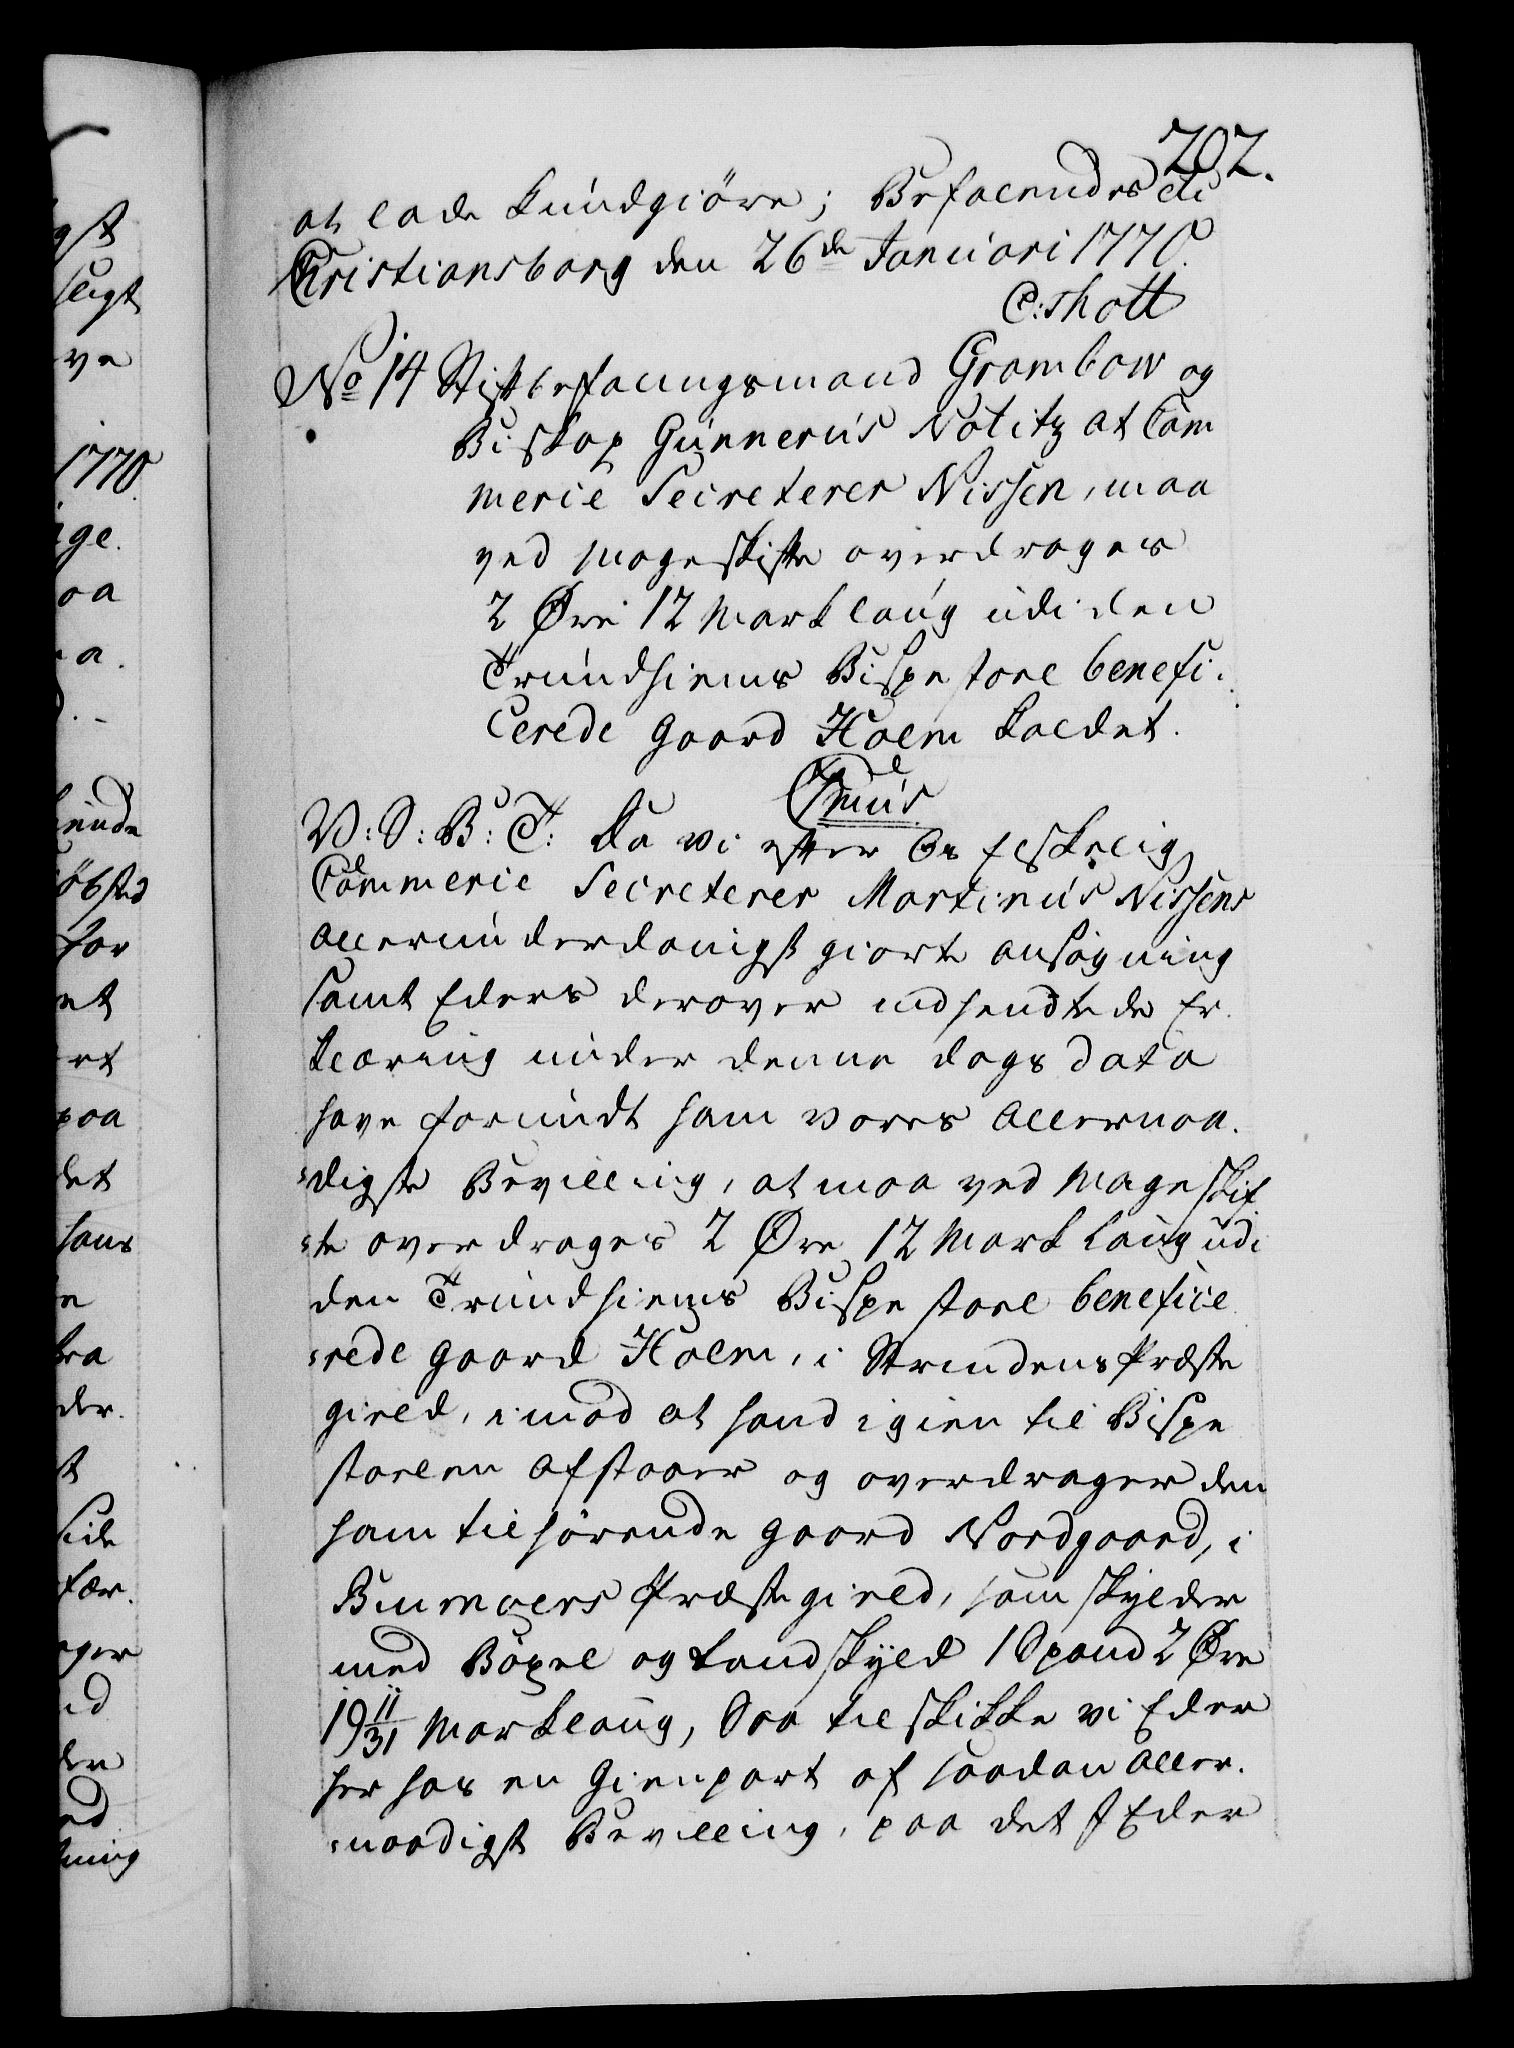 202.
at lade Kundgiöre; Befalendes etc
Christiansborg den 26de Januari 1770.
C: Thott
No 14 Stiftbefalingsmand Grambow og
Biskop Gunnerus Notitz at Com
mercie Secreterer Nissen, maa
ved Mageskifte overdrages
2 Øre 12 Mark laug udi den
Trundhiems Bispe stoel benefi-
cerede Gaard Hoem kaldet.
V: S: B: T: Da vi efter Os
Commercie Secreterer Martinus Nissens
allerunderdanigst giorte ansögning
samt Eders derover indsendtede Er-
klæring under denne dags dato
have forundt ham vores Allernaa-
digste Bevilling, at maa ved Mageskif-
te overdrages 2 Øre 12 Mark laug udi
den Trundhiems Bispe stoel benefice
rede Gaard Hoem, i Strindens Præste
gield, imod at hand igien til Bispe
stolen afstaaer og overdrager den
ham tilhörende Gaard Nordgaard, i
Præstegield, som skylder
med Böxel og Landskyld 1 Spand 2 Øre
19 11/31 Marklaug, Saa tilskikke vi Eder
her hos en Gienpart af saadan Aller-
naadigst Bevilling, paa det I Eder